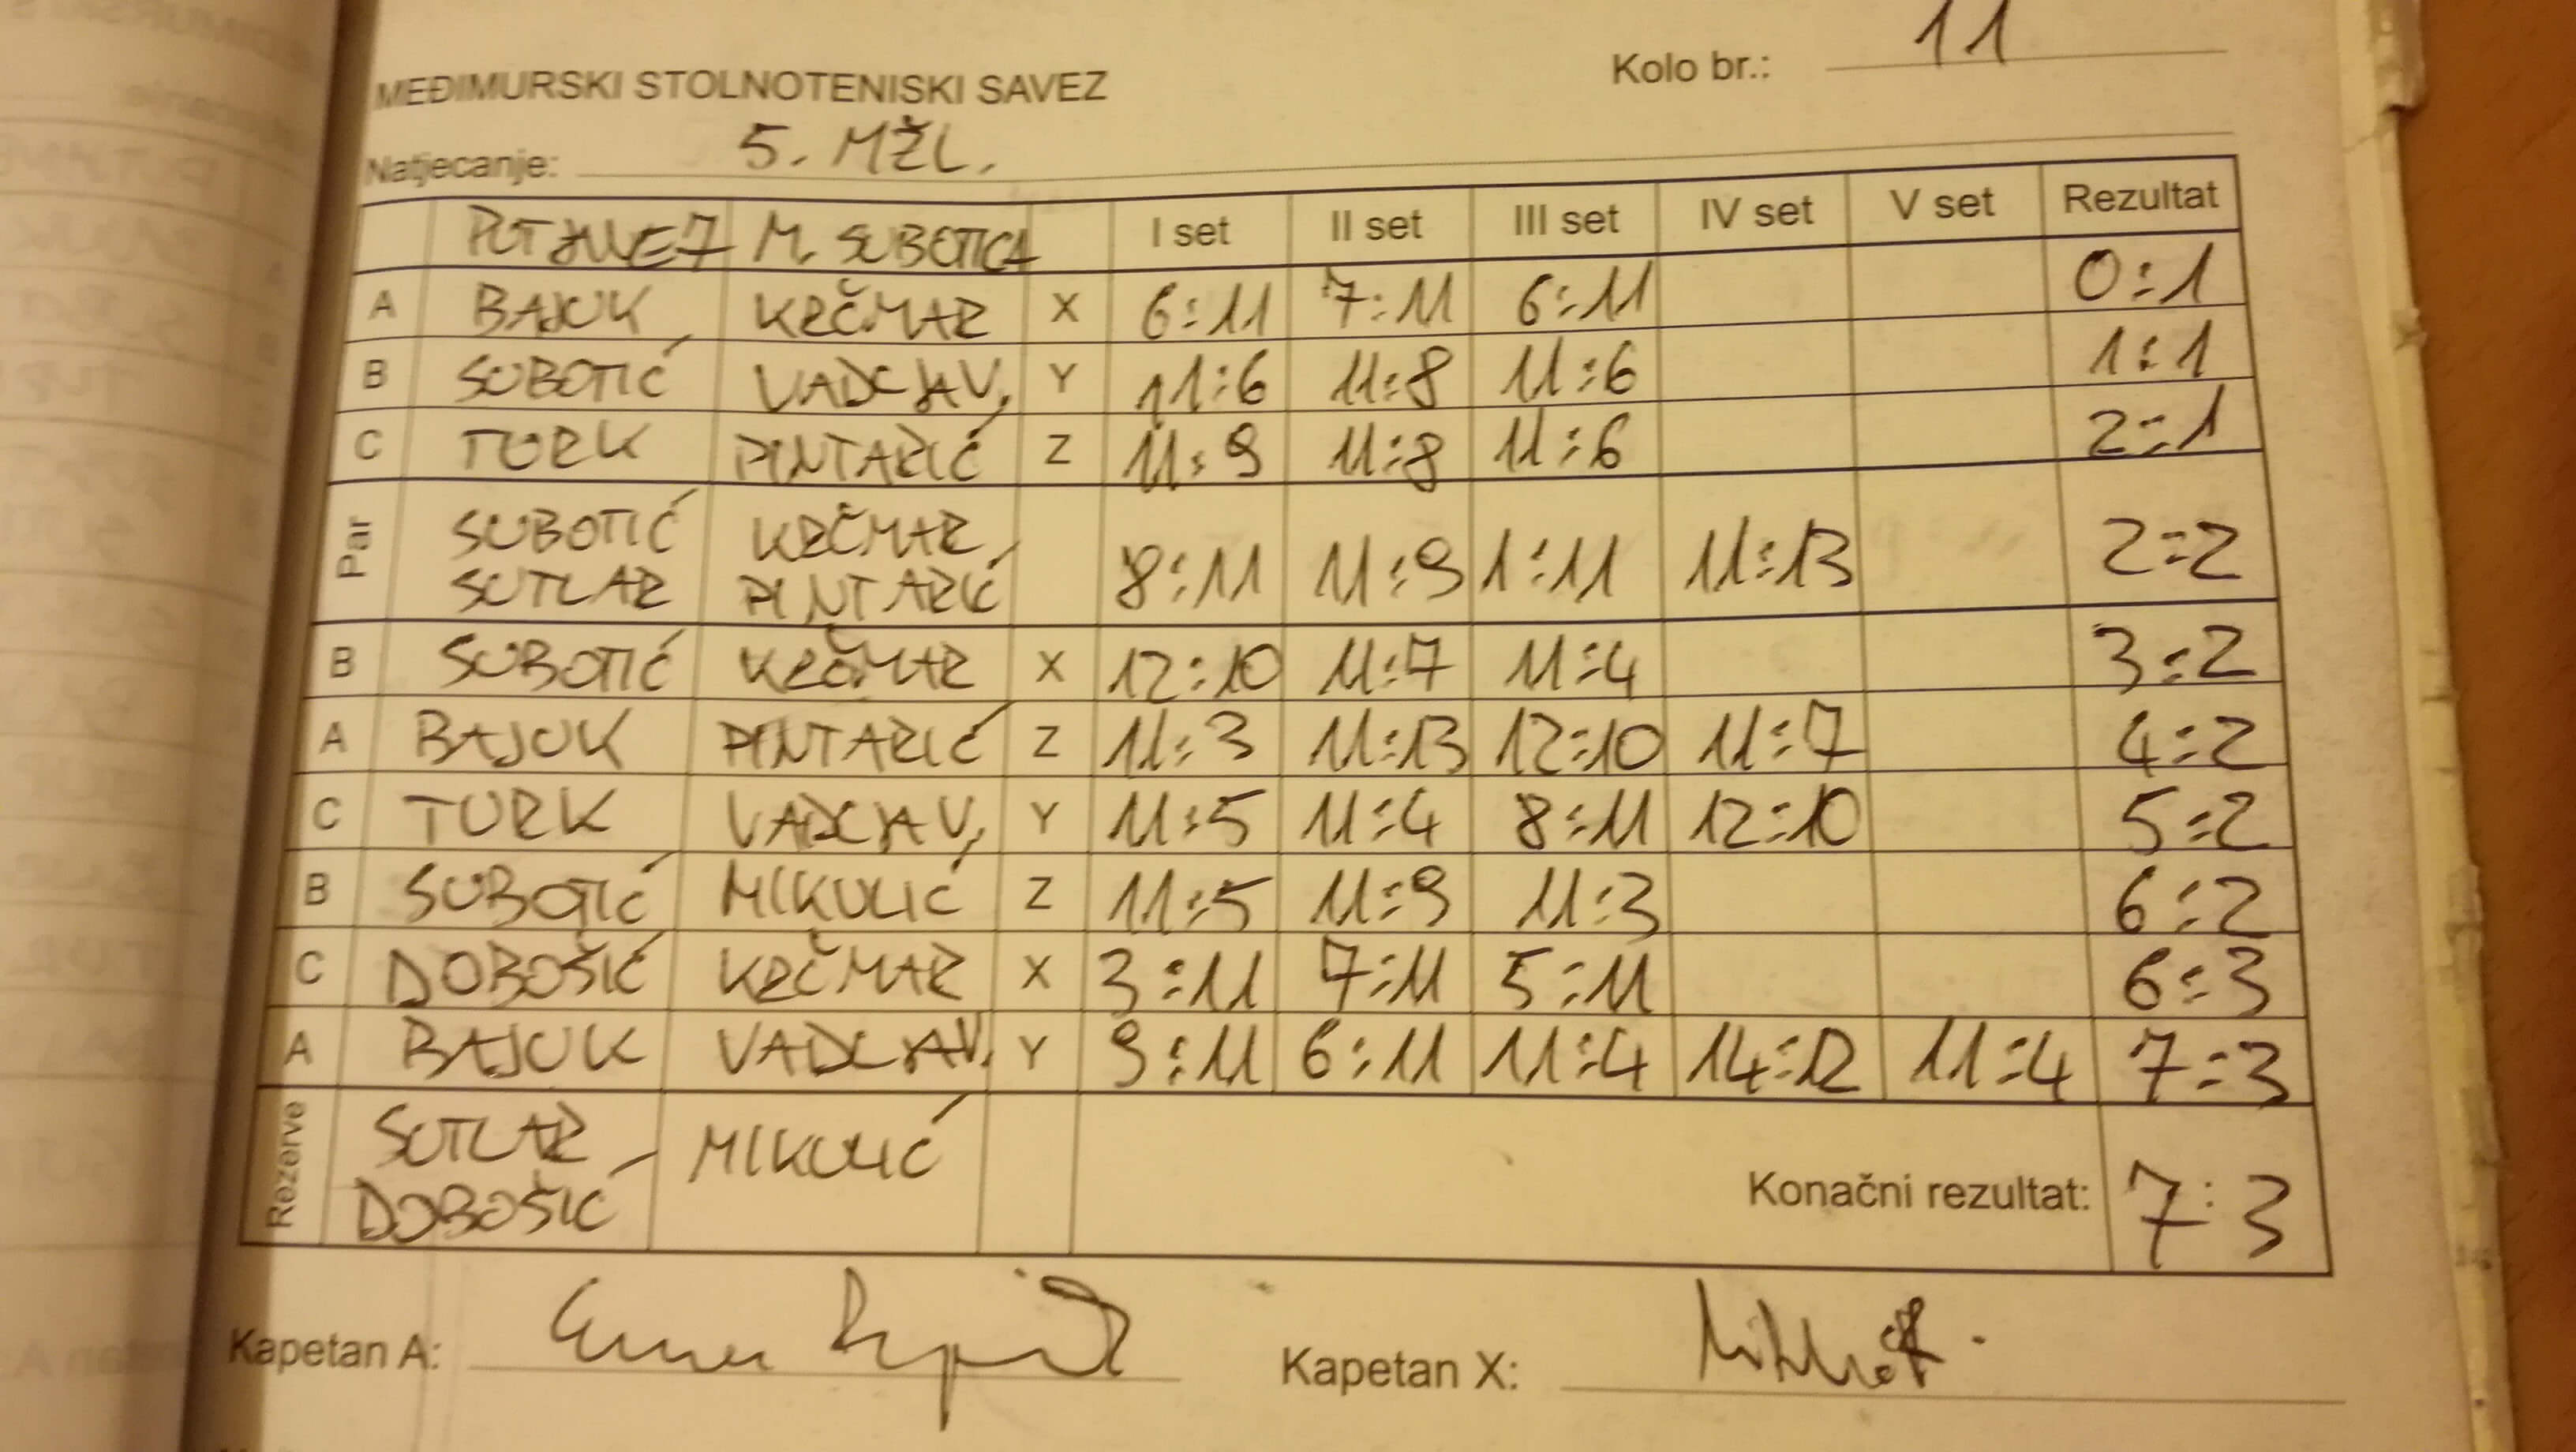 Kolo br.: 11
MEĐIMURSKI STOLNOTENISKI SAVEZ
Natjecanje: 5. MŽL.
M. SUBOTICA I set II set III set IV set V set Rezultat
A BAJUK KRČMAR X 6:11 7:11 6:11 0:1
B SUBOTIĆ VADLJAV. Y 11:6 11:8 11:6 1:1
C TURK PINTARIĆ Z 11:9 11:8 11:6 2:1
Par SUBOTIĆ KRČMAR
SUTLAR PINTARIĆ 8:11 11:9 1:11 11:13 2:2
B SUBOTIĆ KRČMAR X 12:10 11:7 11:4 3:2
A BAJUK PINTARIĆ Z 11:3 11:13 12:10 11:7 4:2
C TURK VADLJAV. Y 11:5 11:4 8:11 12:10 5:2
B SUBOTIĆ MIKULIĆ Z 11:5 11:9 11:3 6:2
C DOBOŠIĆ KRČMAR X 3:11 7:11 5:11 6:3
A BAJUK VADLJAV. Y 9:11 6:11 11:4 14:12 11:4 7:3
Rezerve SUTLAR MIKULIĆ
DOBOŠIĆ Konačni rezultat: 7:3
Kapetan A: Kapetan X: